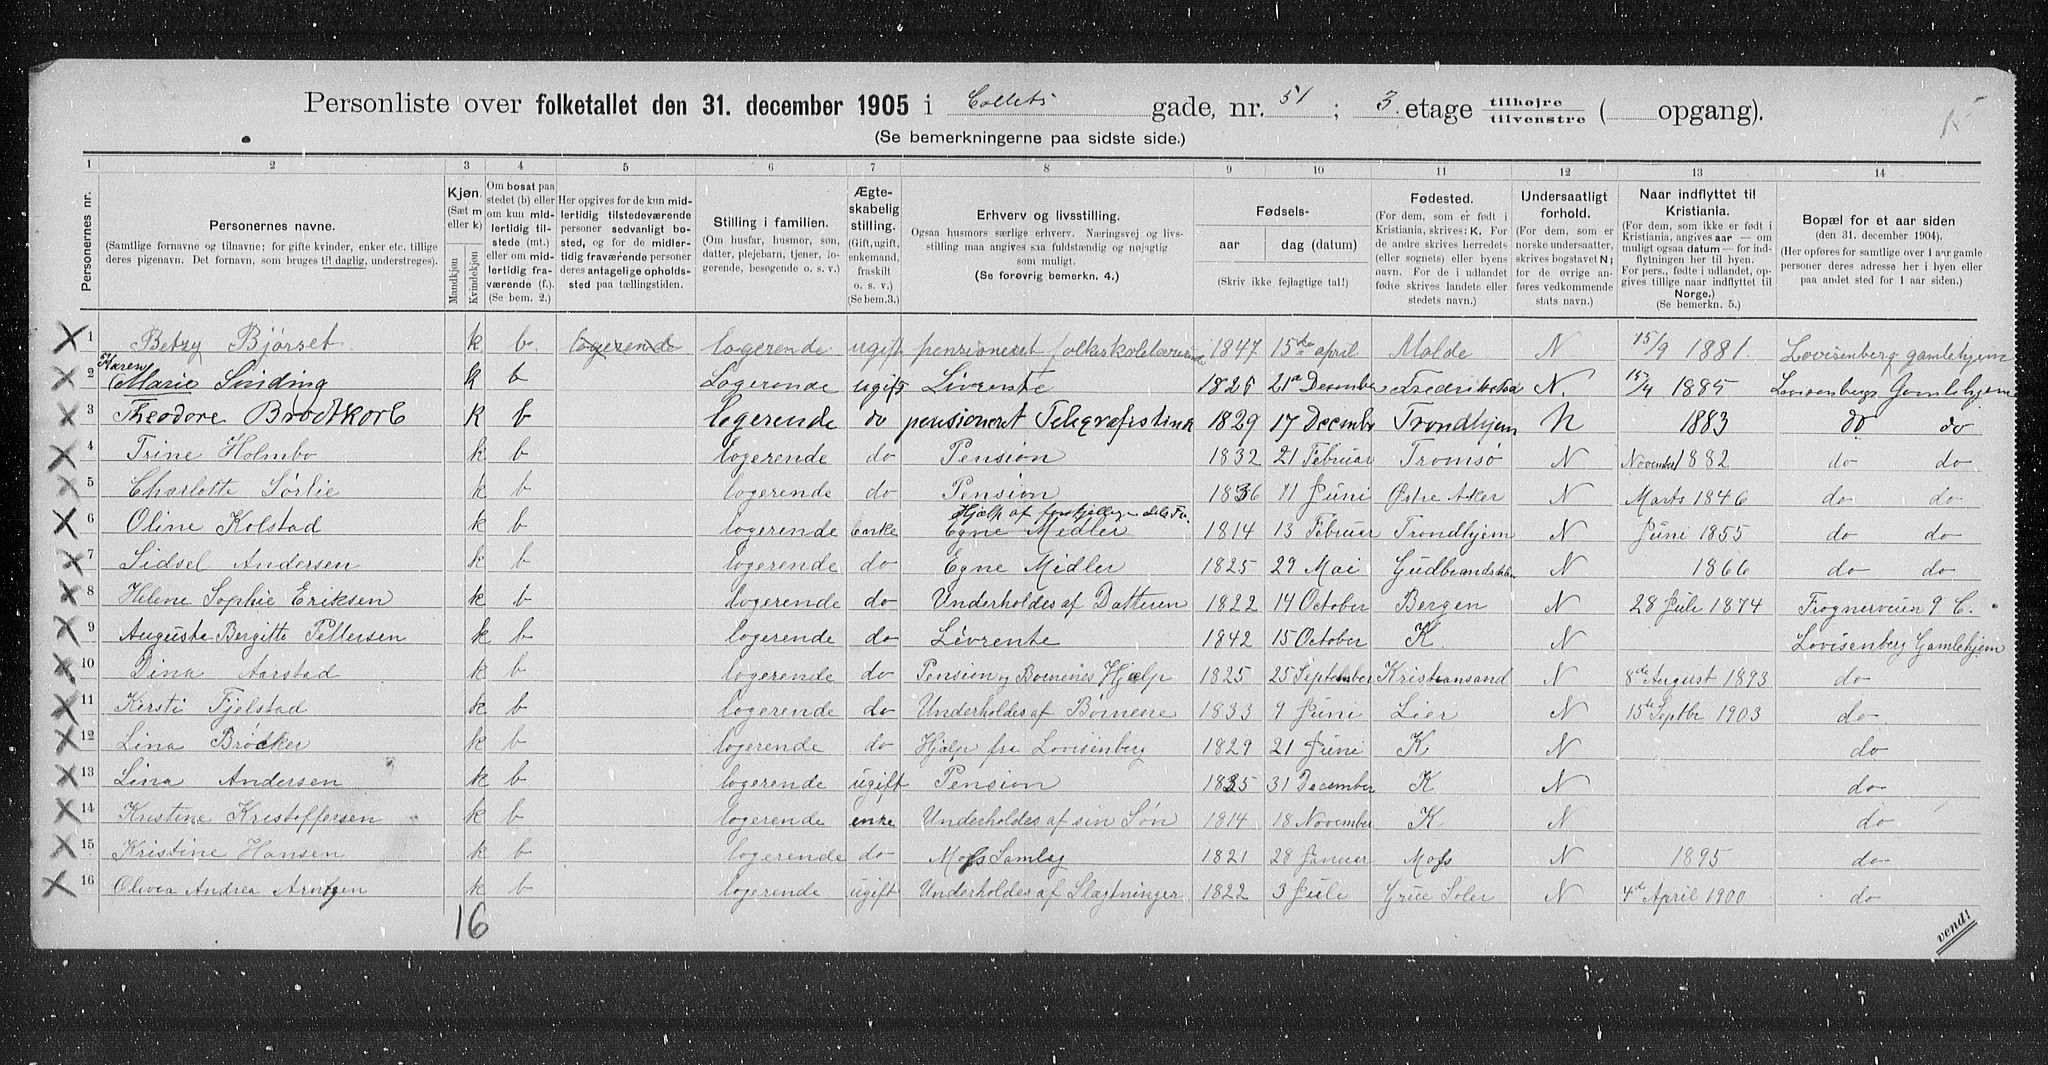 Personliste over folketallet den 31. december 1905 i Collets gade, nr. 51 ; 3. etage tilhøjre tilvenstre ( opgang).
15
(Se bemerkningerne paa sidste side.)
1 2 3 4 5 6 7 8 9 10 11 12 13 14
Personernes nr.
Personernes navne.
(Samtlige fornavne og tilnavne; for gifte kvinder, enker etc. tillige deres pigenavn. Det fornavn, som bruges til daglig, understreges).
Kjøn.
(Sæt m eller k)
Mandkjøn
Kvindekjøn
Om bosat paa stedet (b) eller om kun midlertidig tilstede (mt.) eller om midlertidig fraværende (f.).
(Se bem. 2.)
Her opgives for de kun midlertidig tilstedeværende personer sedvanligt bosted, og for de midlertidig fraværende personer deres antagelige opholdssted paa tællingstiden.
Stilling i familien.
(Om husfar, husmor, søn, datter, plejebarn, tjener, logerende, besøgende o. s. v.)
Ægteskabelig stilling.
(Gift, ugift, enkemand, fraskilt o. s. v.)
(Se bem.3.)
Erhverv og livsstilling.
Ogsaa husmors særlige erhverv. Næringsvej og livsstilling maa angives saa fuldstændig og nøjagtig som muligt.
(Se forøvrig bemerkn. 4.)
Fødsels-
aar dag (datum)
(Skriv ikke fejlagtige tal!)
Fødested.
(For dem, som er født i Kristiania, skrives: K. For de andre skrives herredets (eller sognets) eller byens navn. For de i udlandet fødte skrives landets eller stedets navn.)
Undersaatligt forhold.
(For norske undersaatter, skrives bogstavet N; for de øvrige anføres vedkommende stats navn.)
Naar indflyttet til Kristiania.
(For dem, som ikke er født i Kristiania, angives aar — om muligt ogsaa datum — for indflytningen her til byen. For pers., fødte i udlandet, opgives tillige naar indflyttet til Norge.)
(Se bemerkn. 5.)
Bopæl for et aar siden
(den 31. december 1904).
(Her opføres for samtlige over 1 aar gamle personer deres adresse her i byen eller paa andet sted for 1 aar siden.)
1 Betzy Bjørset k. b. logerende logerende ugift pensioneret folkskolelærerinde 1847 15de april Molde N 15/9 1881. Lovisenberg gamlehjem
2 Karen Marie Sinding k b Logerende ugift Livrente 1825 21de Desember Fredrikstad N. 15/4 1885 Lovisenbergs Gamlehjem
3 Theodore Brodtkorb k b logerende do pensioneret Telegrafistinde 1829 17 Decembr Trondhjem N 1883 do do
4 Trine Holmbo k b logerende do Pension 1832 21 Februar Tromsø N November 1882 do do
5 Charlotte Sørlie k b logerende do Pension 1836 11 Juni Østre Aker N Marts 1846 do do
6 Oline Kolstad k b logerende Enke Hjælp af forskjellige Egne Midler 1814 13 Februar Trondhjem N Juni 1855 do do
7 Sidsel Andersen k b logerende do Egne Midler 1825 29 Mai Gudbrandsdalen N 1866 do do
8 Helene Sophie Eriksen k b logerende do Underholdes af Datteren 1822 14 October Bergen N 28 Juli 1874 Frognerveien 9 C.
9 Auguste Bergitte Pettersen k b logerende do Livrente 1842 15 October K. N Lovisenberg Gamlehjem
10 Dina Aarstad k b logerende do Pension og Børnenes Hjælp 1825 25 September Kristiansand N 8de August 1893 do
11 Kersti Fjelstad k b logerende do Underholdes af Børnene 1833 9 Juni Lier N 15de Septbr 1903 do
12 Lina Brøcker k b logerende do Hjælp fra Lovisenberg 1829 21 Juni K N do
13 Lina Andersen k b logerende ugift Pension 1835 31 December K N do
14 Kristine Kristoffersen k b logerende enke Underholdes af sin Søn 1814 18 November K N do
15 Kristine Hansen k b logerende do Moss Samlag 1821 28 Januar Moss N 1895 do
16 Olivia Andrea Arntzen k b logerende ugift Underholdes af Slægtninger 1822 3 Juli Grue Soler N 4de April 1900 do
16
vend!